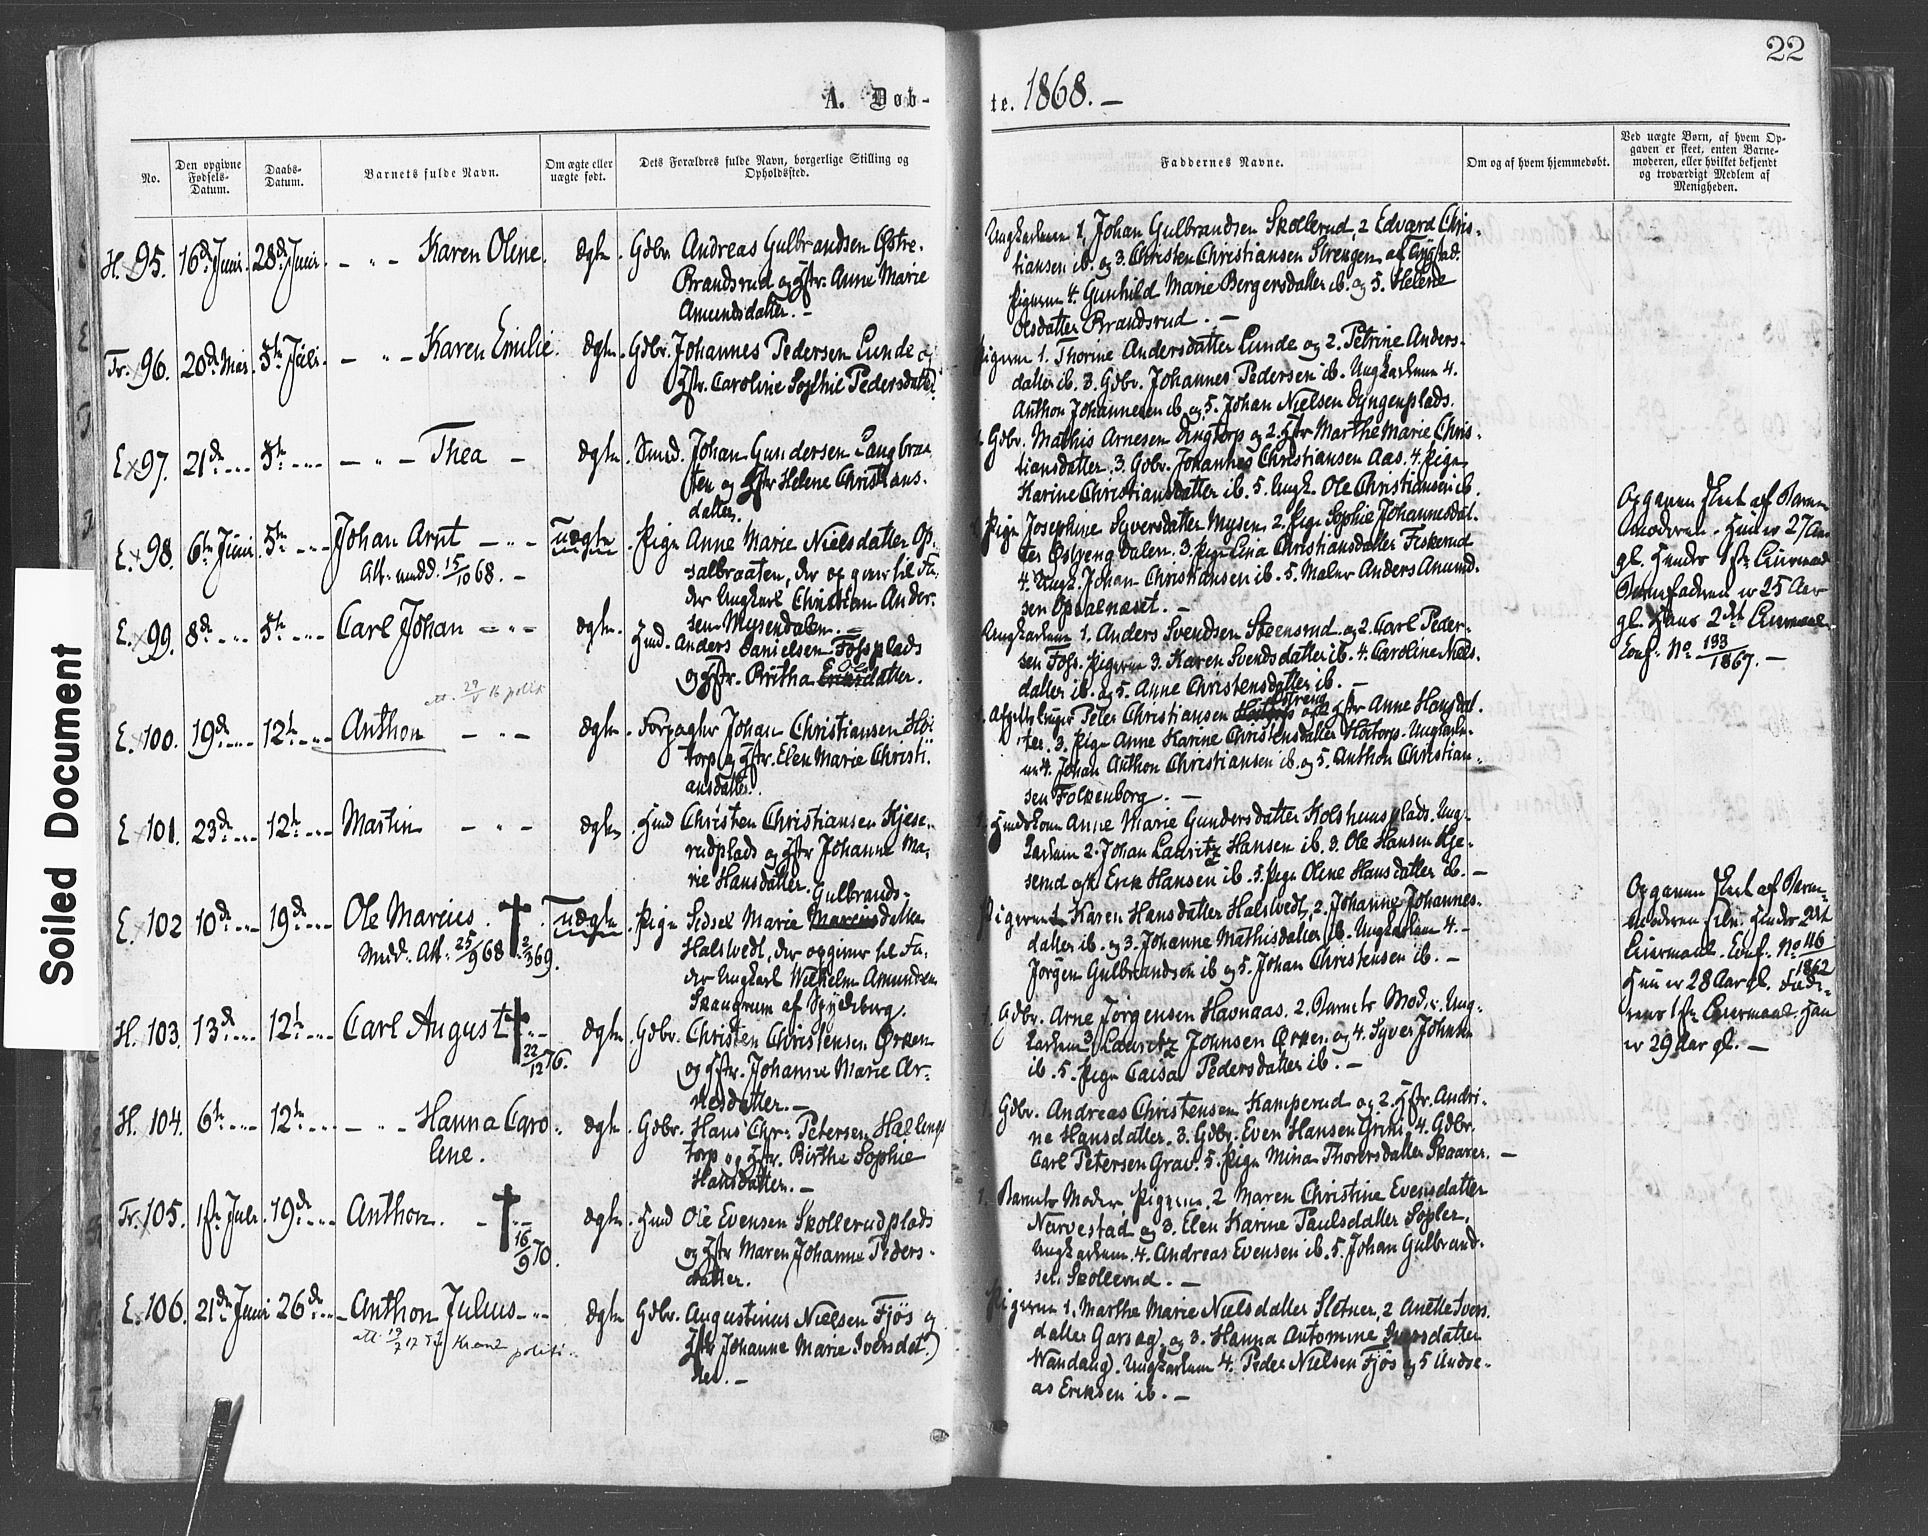 22
A. Døb-
te. 1868. —
No.
Den opgivne Fødsels-Datum.
Daabs-Datum.
Barnets fulde Navn.
Om ægte eller uægte født.
Dets Forældres fulde Navn, borgerlige Stilling og Opholdssted.
Faddernes Navne.
Om og af hvem hjemmedøbt.
Ved uægte Børn, af hvem Opgaven er skeet, enten Barnemoderen, eller hvilket bekjendt og troværdigt Medlem af Menigheden.
Soiled Document
H. 95. 16d Juni. 28d Juni. — " — Karen Oline. ægte. Gdbr. Andreas Gulbrandsen Østre-
Brandsrud og Hstr. Anne Marie
Amundsdatter. —
Ungkarlene 1, Johan Gulbrandsen Skollerud, 2 Edvard Chris-
tiansen ib. og 3. Christen Christiansen Strengen af Trygstad.
Pigerne 4. Gunhild Marie Bergersdatter ib. og 5. Helene
Olsdatter Brandsrud. —
Fr. 96. 20d Mai. 5te Juli. — " — Karen Emilie. ægte. Gdbr. Johannes Pedersen Lunde og
Hstr. Caroline Sophie Pedersdatter.
Pigerne 1. Thorine Andersdatter Lunde og 2. Petrine Anders-
datter ib. 3. Gdbr. Johannes Pedersen ib. Ungkarlene 4.
Anthon Johannesen ib og 5. Johan Nielsen Dyngenplads.
E. 97. 21d 5te — " — Thea — ægte. Smed. Johan Gundersen Langbraa-
ten og Hstr Helene Christians-
datter.
1. Gdbr. Mathis Arnesen Ringtorp og 2. Hstr Marthe Marie Chris-
tiansdatter. 3. Gdbr. Johannes Christiansen Aas. 4. Pige
Karine Christiansdatter ib. 5. Ungk. Ole Christiansen ib.
E. 98. 6te Juni. 5te Johan Arnt — " — Uægte. Pige Anne Marie Nielsdatter Op-
Att. medd. 15/10 68. —
salbraaten, der opgiver til Fa-
der Ungkarl Christian Ander-
sen Mysendalen. —
1. Pige Josephine Syversdatter Mysen. 2. Pige Sophie Johannesdat-
ter Østreng dalen. 3. Pige Lina Christiansdatter Fiskerud
4. Ungk. Johan Christiansen ib. 5. Maler Anders Amund-
sen Opsalnæset. —
Opgaven skeet af Barne
moderen. Hun er 27 Aar
gl. Hendes 1ste Leiermaal
Barnefaderen er 25 Aar
gl. Hans 2det Leiermaal.
Conf. No 133/1867. —
E. 99. 8de 5te Carl Johan — " — ægte. Hmd. Anders Danielsen Fossplads
og Hstr. Birtha Olesdatter.
Ungkarlene 1, Anders Svendsen Steensrud og 2. Carl Peder-
sen Foss. Pigerne 3. Karen Svendsdatter ib. 4. Caroline Niels-
datter ib. og 5. Anne Christensdatter ib. —
att. 29/ 16 politi
E. 100. 19de 12te Anthon — " — ægte. Forpagter Johan Christiansen Høi-
torp og Hstr. Elen Marie Christi-
ansdatter.
Østreng
Peter Christiansen og 2 Hstr Anne Hansdat-
ter. 3. Pige Anne Karine Christensdatter Høitorp. Ungkarle-
ne 4. Johan Anthon Christiansen ib. og 5. Anthon Christian-
sen Folkenborg. —
E. 101. 23de 12te Martin — " — ægte. Hmd Christen Christiansen Kjese-
rudplads og Hstr Johanne Ma-
rie Hansdatter.
1. Hmdskone Anne Marie Gundersdatter Kolshuusplads. Ung-
karlene 2. Johan Lauritz Hansen ib. 3. Ole Hansen Kje-
serud og 4 Erik Hansen ib. 5. Pige Oline Hansdatter ib. —
E. 102 10de 19de Ole Marius. ✝ Uægte. Pige Sidsel Marie Gulbrandsdatter
Medd. Att. 25/9 68 2/3 69.
Halsvedt, der opgiver til Fa-
der Ungkarl Wilhelm Amundsen
Skaugrum af Spydeberg.
Pigerne 1 Karen Hansdatter Halsvedt, 2. Johanne Johannes-
datter ib. og 3. Johanne Mathisdatter ib. Ungkarlene 4. —
Jørgen Gulbrandsen ib og 5. Johan Christensen ib. —
Opgaven skeet af Barne-
moderen selv. Hendes 2det
Leiermaal. Conf. No 46/1862
Hun er 28 Aar gl. Fade-
rens 1ste Leiermaal. Han
er 29 Aar gl. —
H. 103. 13de 12te Carl August ✝ " — ægte. Gdbr. Christen Christensen Ørken
22/12 76.
og Hstr. Johanne Marie Ar-
nesdatter. —
1. Gdbr. Arne Jørgensen Havnaas. 2. Barnets Moder. Ung-
karlene 3, Lauritz Johnsen Ørken og 4. Syver Johnsen
ib. 5. Pige Caisa Pedersdatter ib. —
H. 104. 6te 12te — " — Hanna Caro-
line.
ægte. Gdbr. Hans Chr. Petersen Hællings-
torp og Hstr. Birthe Sophie
Hansdatter. —
1. Gdbr. Andreas Christensen Kamperud og 2. Hstr. Andri-
ne Hansdatter. 3. Gdbr. Even Hansen Grini. 4. Gdbr.
Carl Petersen Grav. 5. Pige Mina Thorersdatter Skaarer. —
Fr. 105. 1ste Juli. 19de Anthon. — ✝ " — ægte. Hmd Ole Evensen Skollerudplads
16/9 70.
og Hstr Maren Johanne Peders-
datter.
1. Barnets Moder, Pigerne 2 Maren Christine Evensdatter
Narvestad og 3. Elen Karine Paulsdatter Sopler.
Ungkarlene 4. Andreas Evensen ib. 5. Johan Gulbrand-
sen Skollerud. —
E. 106. 21de Juni 26de — Anthon Julius " — ægte. Gdbr. Augustinus Nielsen Fjøs og
att. 19/7 17 til Krania politi.
Hstr Johanne Marie Iversdat-
ter. —
Pigerne 1. Marthe Marie Nielsdatter Sletner, 2 Anette Ivers-
datter Garseg, og 3. Hanna Antomine Iversdatter
Wandaug. Ungkarlene 4. Peder Nielsen Fjøs og 5 Andre-
as Eriksen ib. —